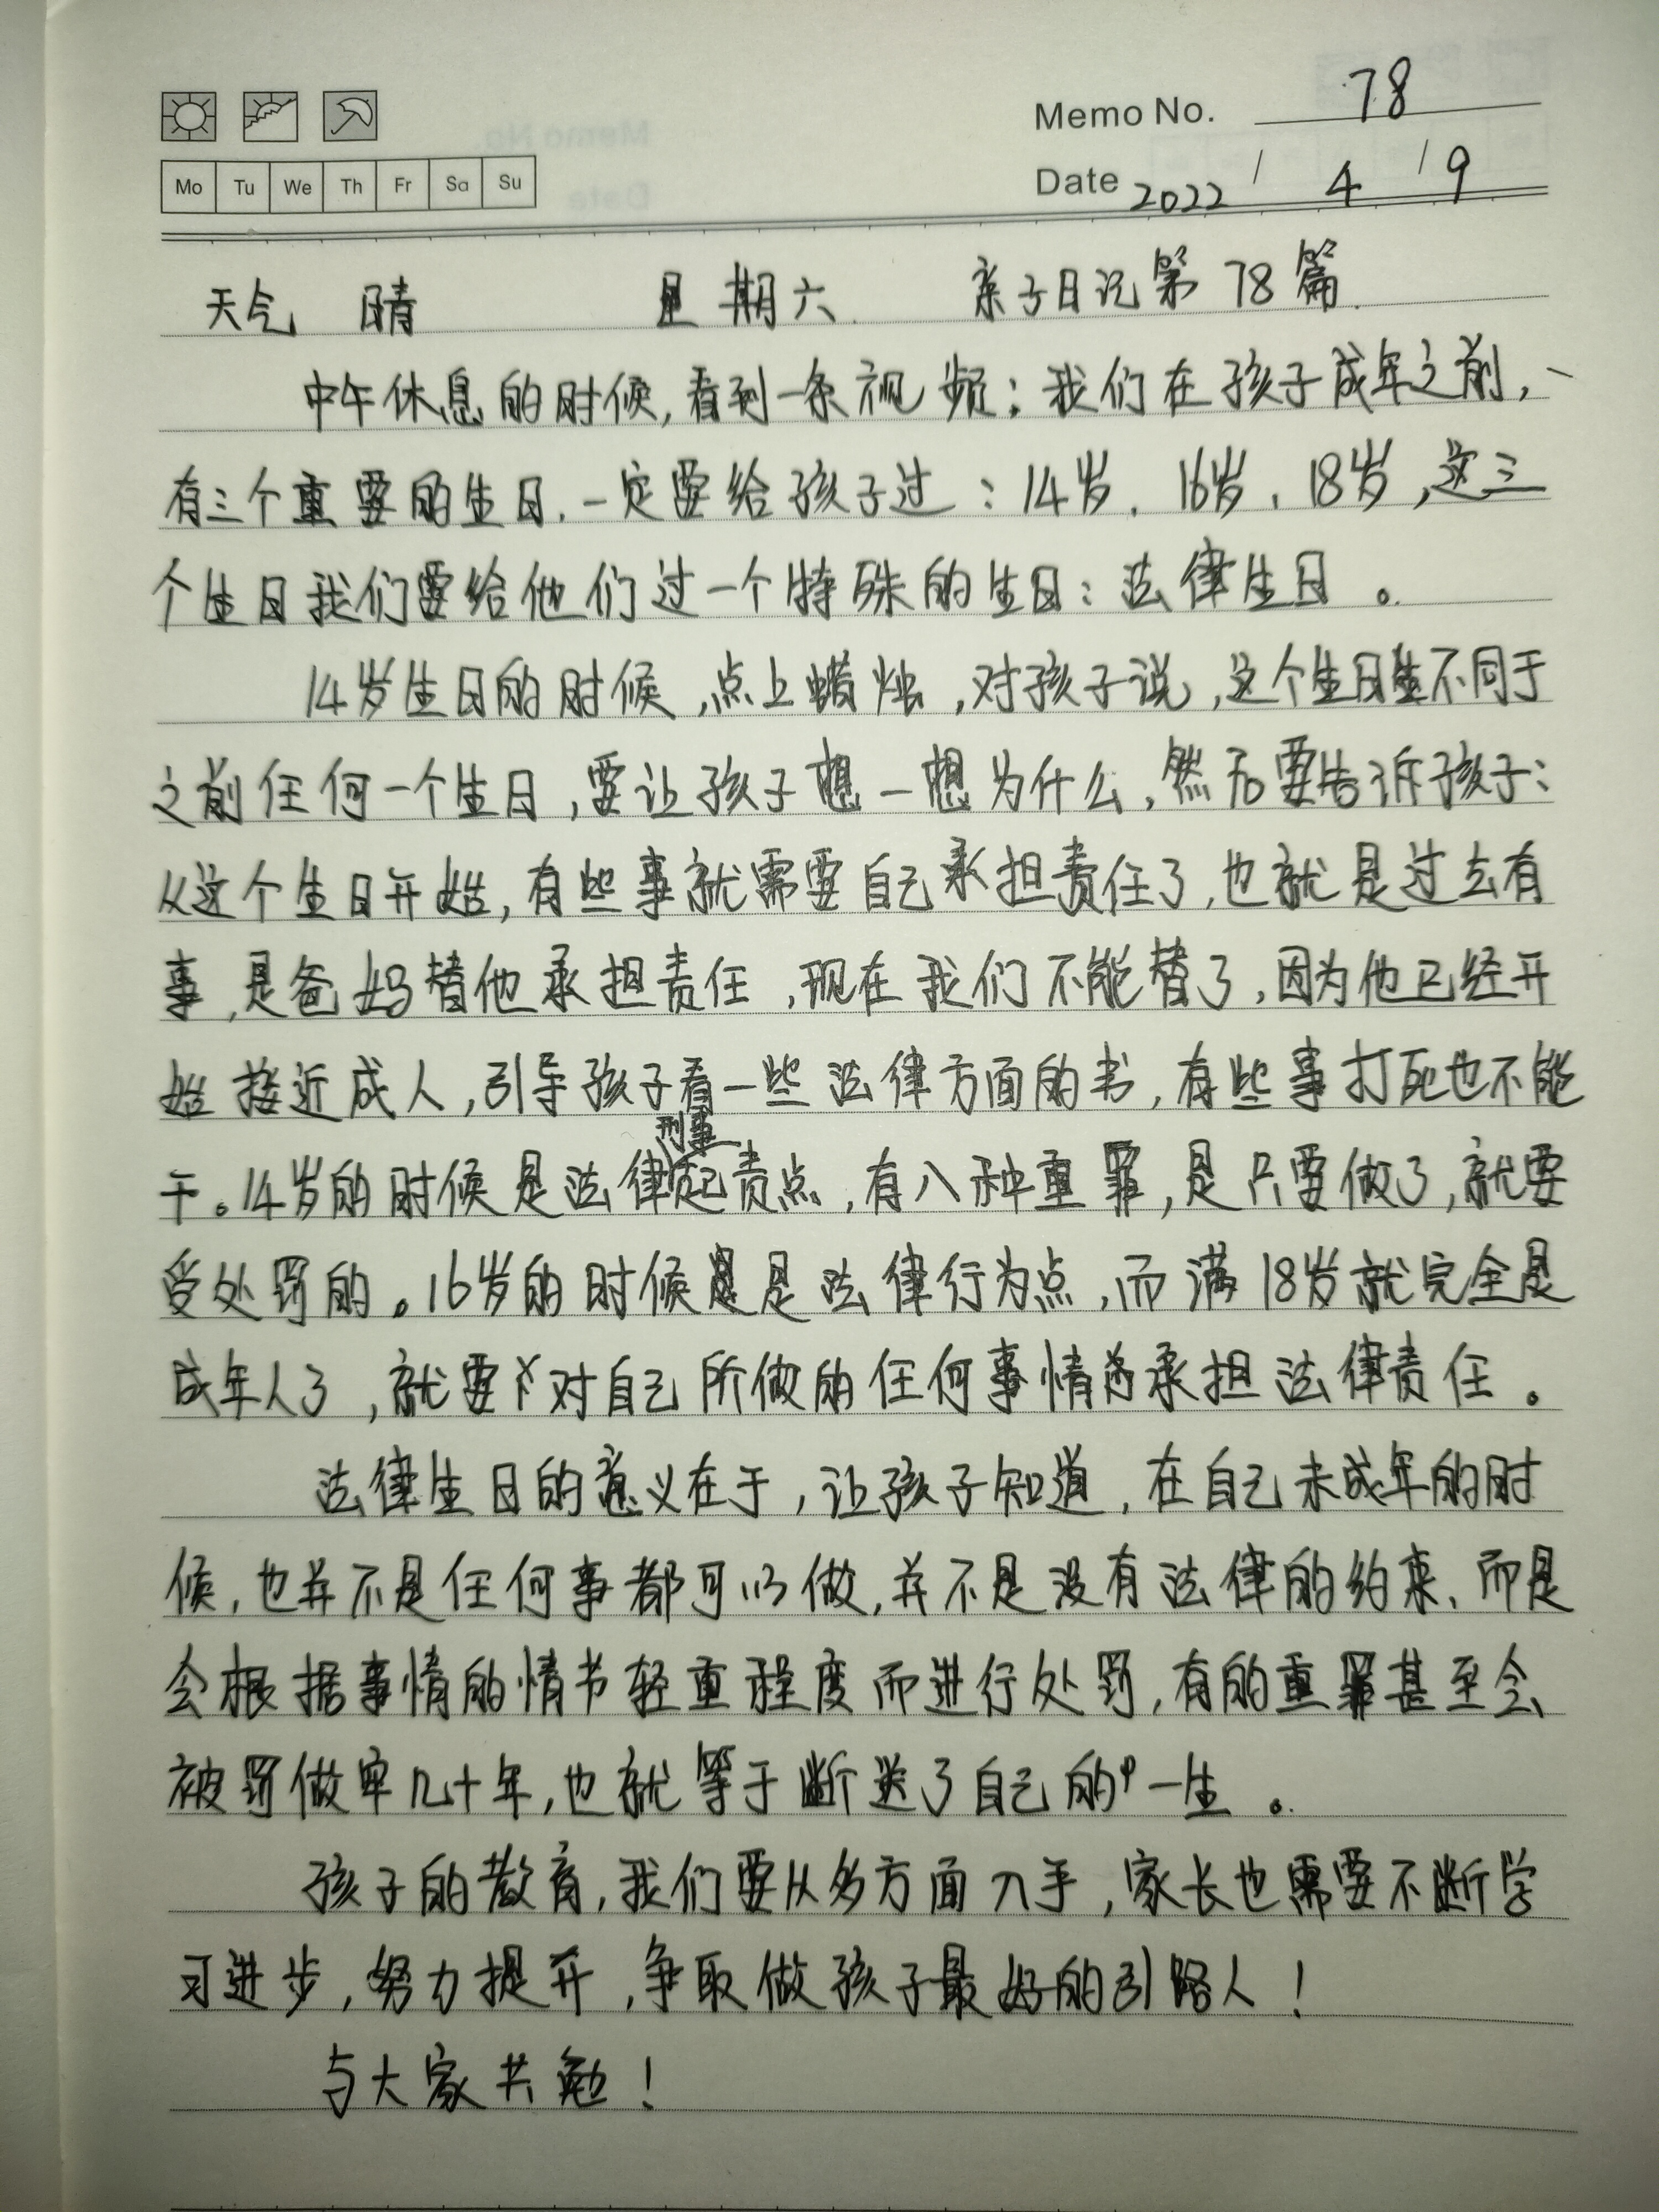 Memo No. 78
Mo Tu We Th Fr Sa Su
Date 2022 / 4 / 9
天气 晴 星期六. 亲子日记第78篇.
中午休息的时候,看到一条视频:我们在孩子成年之前,
有三个重要的生日.一定要给孩子过:14岁、16岁、18岁,这三
个生日我们要给他们过一个特殊的生日:法律生日。
14岁生日的时候,点上蜡烛,对孩子说,这个生日不同于
之前任何一个生日,要让孩子想一想为什么,然后要告诉孩子:
从这个生日开始,有些事就需要自己承担责任了,也就是过去有
事,是爸妈替他承担责任,现在我们不能替了,因为他已经开
始接近成人,引导孩子看一些法律方面的书,有些事打死也不能
干。14岁的时候是法律刑事起责点,有八种重罪,是只要做了,就要
受处罚的。16岁的时候是法律行为点,而满18岁就完全是
成年人了,就要对自己所做的任何事情承担法律责任。
法律生日的意义在于,让孩子知道,在自己未成年的时
候,也并不是任何事都可以做,并不是没有法律的约束、而是
会根据事情的情节轻重程度而进行处罚,有的重罪甚至会
被罚做牢几十年,也就等于断送了自己的一生。
孩子的教育,我们要从多方面入手,家长也需要不断学
习进步,努力提升,争取做孩子最好的引路人!
与大家共勉!